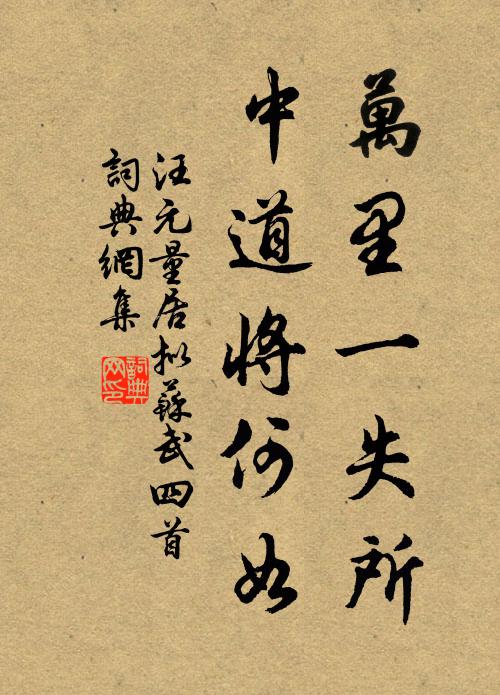 萬里一失所
中道將何如
汪元量居擬蘇武四首
詞典網集
詞典
网印